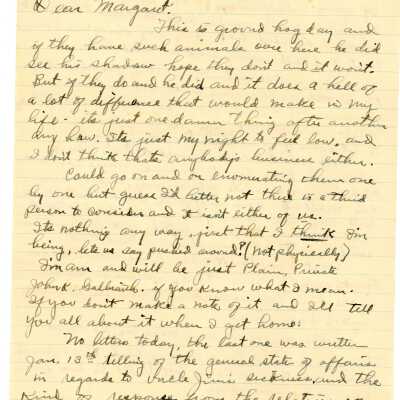 Dear Margaret:
This is ground hog day and
if they have such animals over here he did
see his shadow hope they dont and it wont.
But if they do and he did and it does a hell of
a lot of difference that would make in my
life - its just one damn thing after another
any how. Its just my night to feel low, and
I don't think thats anybodys business either.
Could go on and on enumerating them one
by one but guess I'd better not there is a third
person to consider and it isnt either of us.
Its nothing any way, just that I think I'm
being, lets us say pushed around? (Not physically)
I'm am and will be just Plain, Private
John K. if you know what I mean.
If you don't make a note of it and I'll tell
you all about it when I get home:
No letters today, the last one was written
Jan. 13th telling of the general state of affairs
in regards to Uncle Jim's sickness, and the
kind of response from the